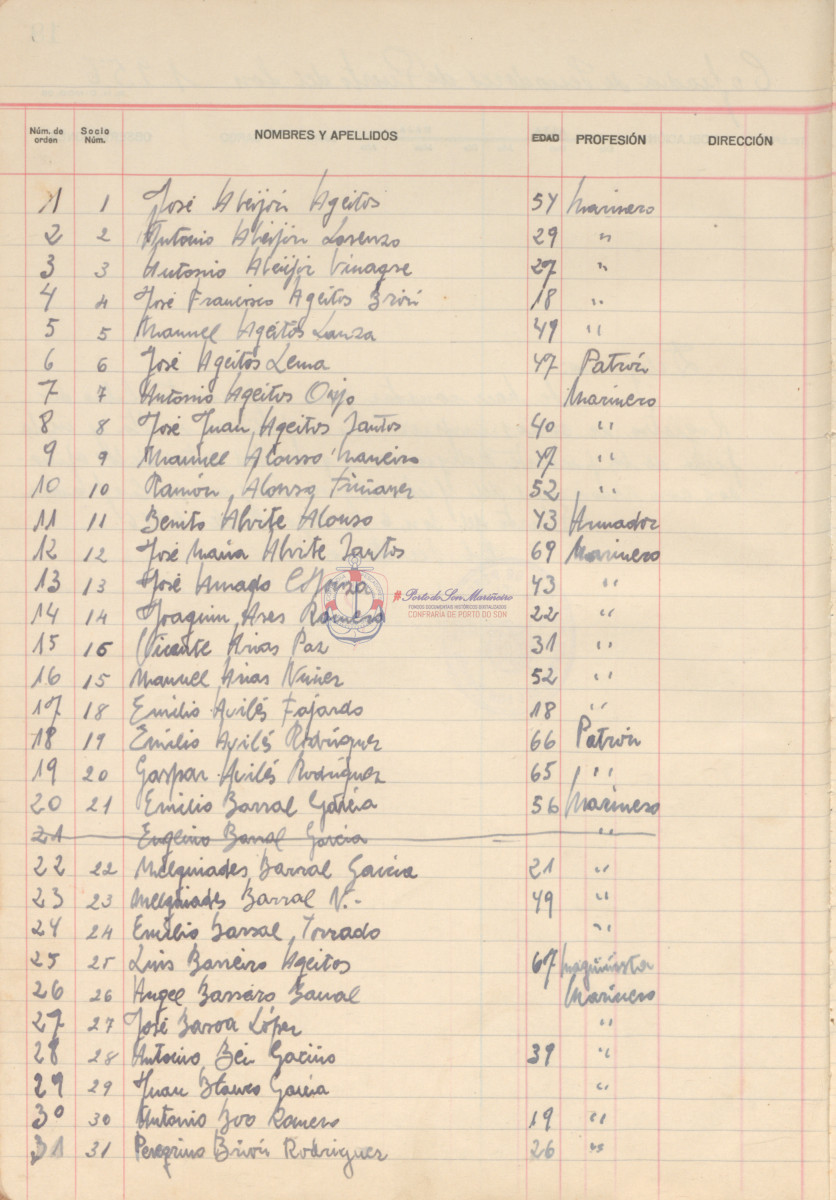 Núm. de orden Socio Núm. NOMBRES Y APELLIDOS EDAD PROFESIÓN DIRECCIÓN
1 1 José Abeijón Ageitos 54 Marinero
2 2 Antonio Abeijón Lorenzo 29 "
3 3 Antonio Abeijón Vinagre 27 "
4 4 José Francisco Ageitos Brión 18 "
5 5 Manuel Ageitos Lanza 49 "
6 6 José Ageitos Lema 47 Patrón
7 7 Antonio Ageitos Marinero
8 8 José Juan Ageitos Santos 40 "
9 9 Manuel Alonso Maneiro 47 "
10 10 Ramón Alonso 52 "
11 11 Benito Alvite Alonso 43 Armador
12 12 José María Alvite Santos 69 Marinero
13 13 José Amado 43 "
14 14 Joaquin Ares Romero 22 "
15 16 Vicente Arias Paz 31 "
16 15 Manuel Arias Núñez 52 "
17 18 Emilio Avilés Fajardo 18 "
18 19 Emilio Avilés Rodríguez 66 Patrón
19 20 Gaspar Avilés Rodríguez 65 "
20 21 Emilio Barral García 56 Marinero
21 Barral García "
22 22 Melquiades Barral García 21 "
23 23 Melquiades Barral N.- 49 "
24 24 Emilio Barral Torrado "
25 25 Luis Barreiro Ageitos 67 Maquinista
26 26 Angel Barreiro Barral Marinero
27 27 José Basoa López "
28 28 Antonio Bei Gaciño 39 "
29 29 Juan Blanco García "
30 30 Antonio Boo Romero 19 "
31 31 Peregrino Brión Rodriguez 26 "
#Porto do Son Mariñeiro
FONDOS DOCUMENTAIS HISTÓRICOS DIXITALIZADOS
CONFRARÍA DE PORTO DO SON